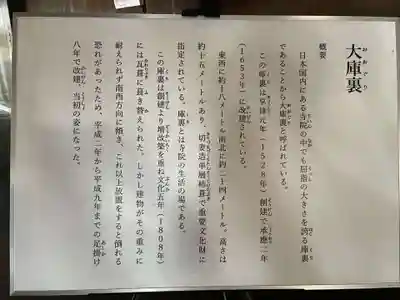 大庫裏
おおぐり
概要
日本国内にある寺院の中でも屈指の大きさを誇る庫裏
であることから大庫裏と呼ばれている。
この庫裏は享禄元年(1528年)創建で承応二年
(1653年)に改建されている。
東西に約十八メートル南北に約二十四メートル。高さは
約十五メートルあり、切妻造単層柿葺で重要文化財に
指定されている。庫裏とは寺院の生活の場である。
この庫裏は創建より増改築を重ね文化五年(1808年)
には瓦葺に葺き替えられた。しかし建物がその重みに
耐えられず南西方向に傾き、これ以上放置をすると倒れる
恐れがあったため、平成二年から平成九年までの足掛け
八年で改建、当初の姿になった。